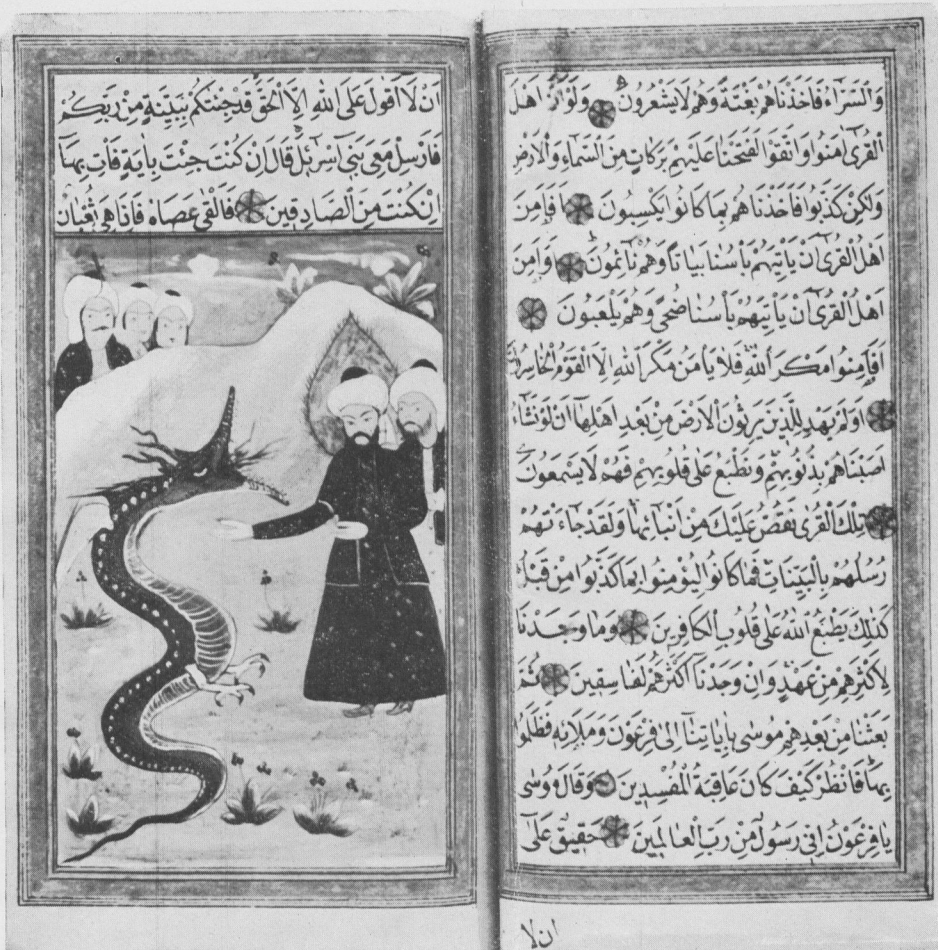 وَالسَّرَّاءُ فَاَخَذْنَاهُمْ بَغْتَةً وَهُمْ لَا يَشْعُرُونَ وَلَوْ اَنَّ اَهْلَ
الْقُرٰٓى اٰمَنُوا وَاتَّقَوْا لَفَتَحْنَا عَلَيْهِمْ بَرَكَاتٍ مِنَ السَّمَاءِ وَالْاَرْضِ
وَلٰكِنْ كَذَّبُوا فَاَخَذْنَاهُمْ بِمَا كَانُوا يَكْسِبُونَ اَفَاَمِنَ
اَهْلُ الْقُرٰٓى اَنْ يَاْتِيَهُمْ بَاْسُنَا بَيَاتًا وَهُمْ نَائِمُونَ وَاَمِنَ
اَهْلُ الْقُرٰٓى اَنْ يَاْتِيَهُمْ بَاْسُنَا ضُحًى وَهُمْ يَلْعَبُونَ
اَفَاَمِنُوا مَكْرَ اللّٰهِ فَلَا يَاْمَنُ مَكْرَ اللّٰهِ اِلَّا الْقَوْمُ الْخَاسِرُونَ
اَوَلَمْ يَهْدِ لِلَّذِينَ يَرِثُونَ الْاَرْضَ مِنْ بَعْدِ اَهْلِهَا اَنْ لَوْ نَشَاءُ
اَصَبْنَاهُمْ بِذُنُوبِهِمْ وَنَطْبَعُ عَلٰى قُلُوبِهِمْ فَهُمْ لَا يَسْمَعُونَ
تِلْكَ الْقُرٰى نَقُصُّ عَلَيْكَ مِنْ اَنْبَائِهَا وَلَقَدْ جَاءَتْهُمْ
رُسُلُهُمْ بِالْبَيِّنَاتِ فَمَا كَانُوا لِيُؤْمِنُوا بِمَا كَذَّبُوا مِنْ قَبْلُ
كَذٰلِكَ يَطْبَعُ اللّٰهُ عَلٰى قُلُوبِ الْكَافِرِينَ وَمَا وَجَدْنَا
لِاَكْثَرِهِمْ مِنْ عَهْدٍ وَاِنْ وَجَدْنَا اَكْثَرَهُمْ لَفَاسِقِينَ ثُمَّ
بَعَثْنَا مِنْ بَعْدِهِمْ مُوسٰى بِاٰيَاتِنَا اِلٰى فِرْعَوْنَ وَمَلَائِهِ فَظَلَمُوا
بِهَا فَانْظُرْ كَيْفَ كَانَ عَاقِبَةُ الْمُفْسِدِينَ وَقَالَ مُوسٰى
يَا فِرْعَوْنُ اِنِّي رَسُولٌ مِنْ رَبِّ الْعَالَمِينَ حَقِيقٌ عَلٰٓى
ان لا
اَنْ لَا اَقُولَ عَلَى اللّٰهِ اِلَّا الْحَقَّ قَدْ جِئْتُكُمْ بِبَيِّنَةٍ مِنْ رَبِّكُمْ
فَاَرْسِلْ مَعِيَ بَنِي اِسْرَائِلَ قَالَ اِنْ كُنْتَ جِئْتَ بِاٰيَةٍ فَاْتِ بِهَا
اِنْ كُنْتَ مِنَ الصَّادِقِينَ فَاَلْقٰى عَصَاهُ فَاِذَا هِيَ ثُعْبَانٌ